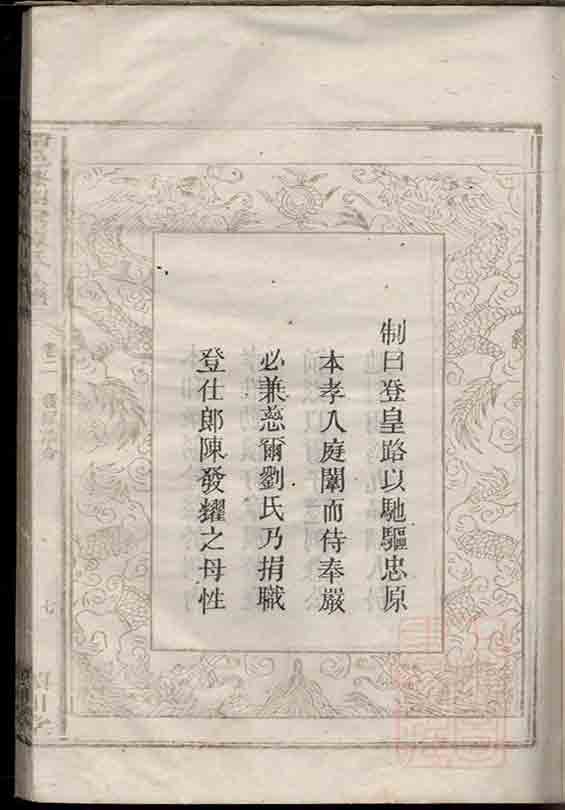 制曰登皇路以馳驅忠原
本孝入庭闈而侍奉嚴
必兼慈爾劉氏乃捐職
登仕郎陳發耀之母性
卷二
七